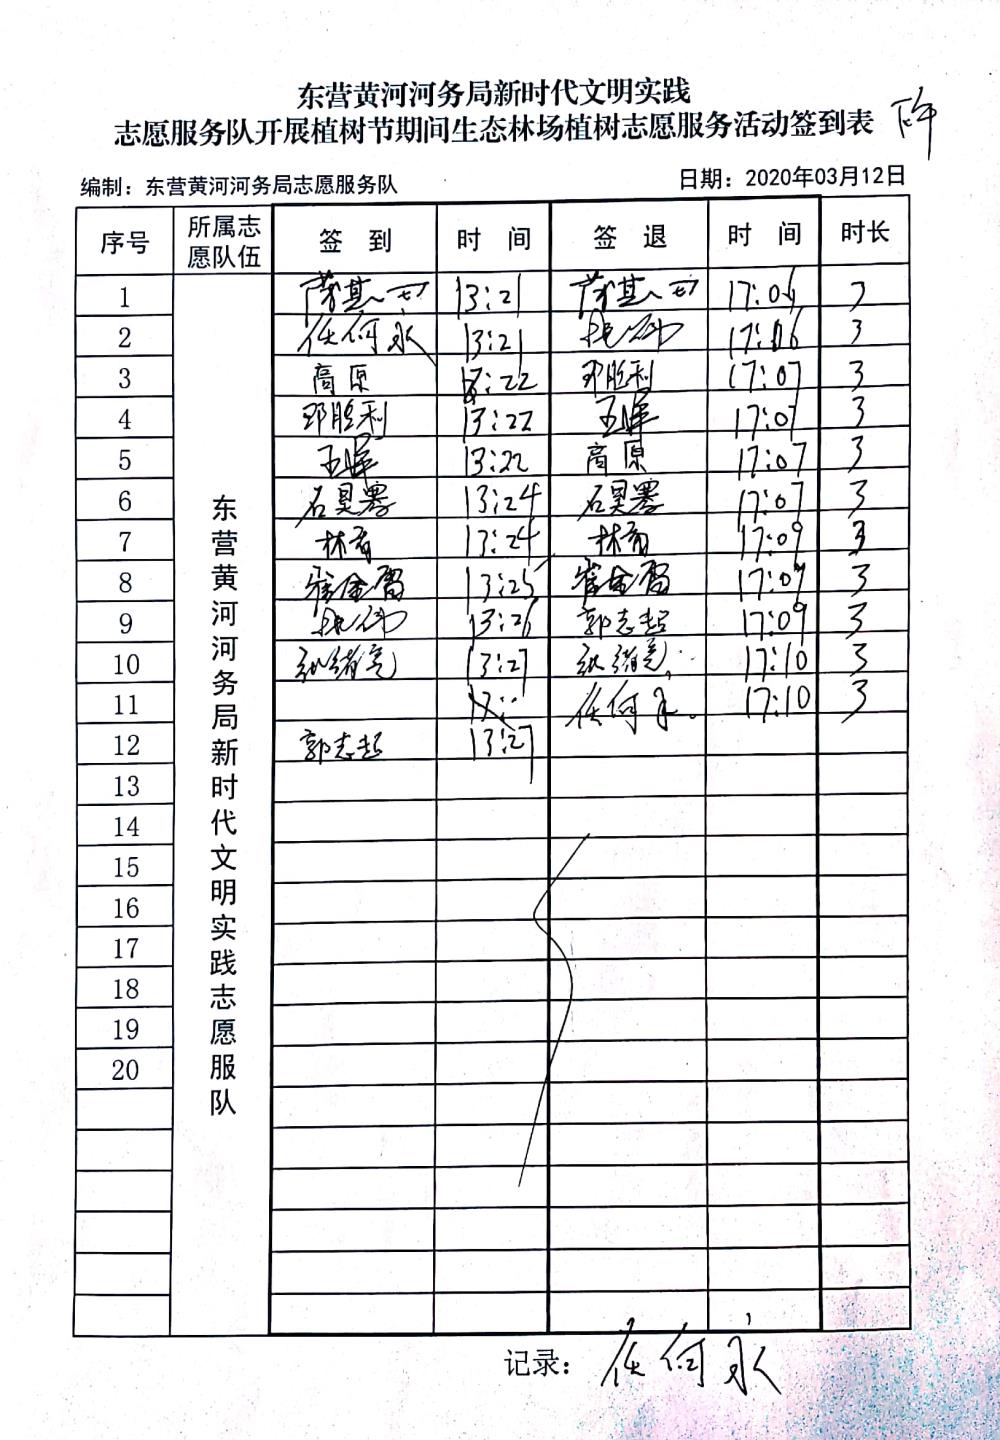 东营黄河河务局新时代文明实践
志愿服务队开展植树节期间生态林场植树志愿服务活动签到表 下午
编制：东营黄河河务局志愿服务队 日期：2020年03月12日
序号 所属志愿队伍 签 到 时 间 签 退 时 间 时长
东营黄河河务局新时代文明实践志愿服务队
1 13:21 17:06 3
2 任何永 13:21 17:06 3
3 高原 13:22 邓胜利 17:07 3
4 邓胜利 13:22 王晖 17:07 3
5 王晖 13:22 高原 17:07 3
6 石昊 13:24 石昊 17:07 3
7 林育 13:24 林育 17:09 3
8 崔金 13:25 崔金 17:09 3
9 13:26 郭志超 17:09 3
10 13:27 17:10 3
11 任何永 17:10 3
12 郭志超 13:27
13
14
15
16
17
18
19
20
记录：任何永